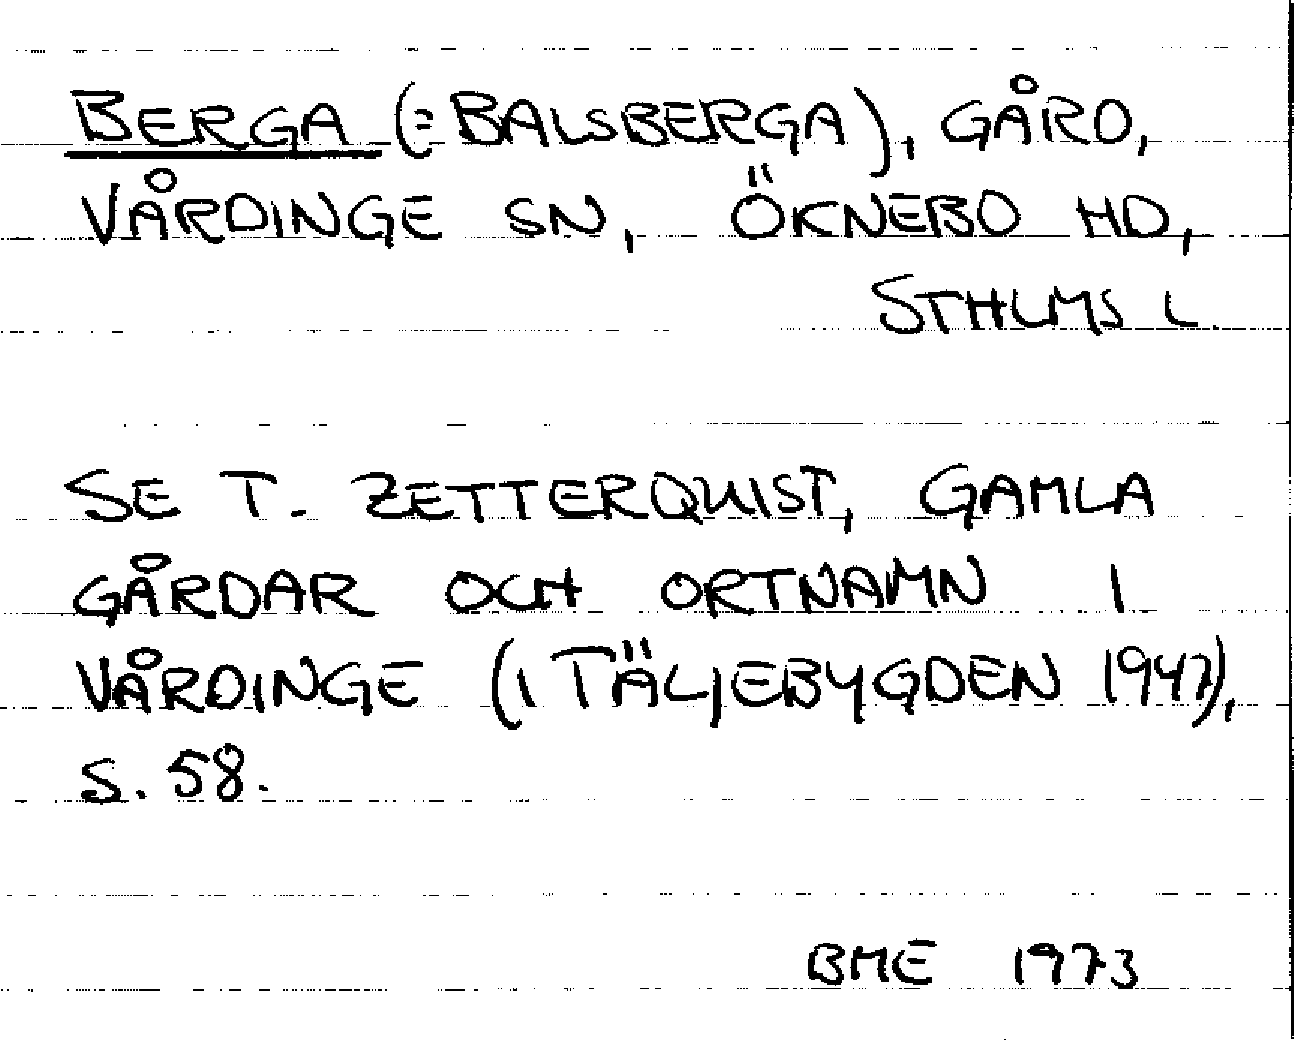 BERGA (= BALSBERGA), GÅRD,
VÅRDINGE SN, ÖKNEBO HD,
STHLMS L.
SE T. ZETTERQUIST, GAMLA
GÅRDAR OCH ORTNAMN I
VÅRDINGE (I TÄLJEBYGDEN 1947),
S. 58.
BME 1973